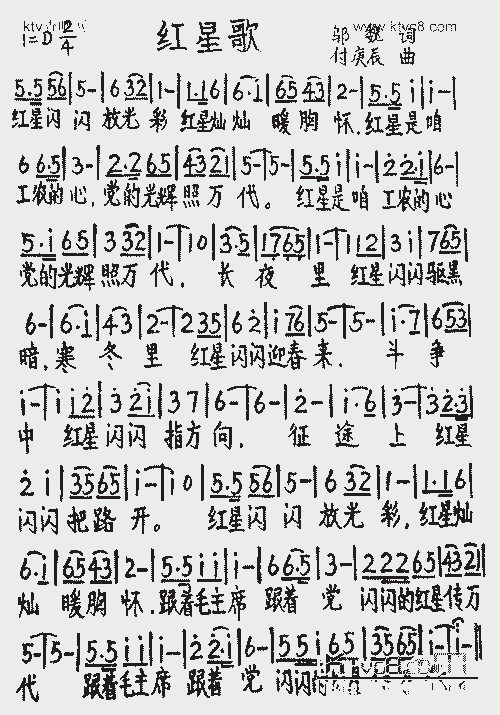 红星歌
邬 魏 词
付庚辰 曲
1=D 2/4
5·5 56|5-|6 332|1-|1·1 6|6·1|65 43|2-|5·5 i|i-|
红星闪 闪 放光 彩 红星灿 灿 暖 胸 怀,红星是咱
6 6·5|3-|2·2 65|43 21|5-|5-|5·5 i|i-|2 2·i|6-|
工农的 心,党的光辉 照 万 代。 红星是咱 工农的心
5·i 65|3 332|1-|10|3·5|1765|1-|112|3 i|765|
党的光辉 照万 代, 长 夜 里 红星闪闪驱黑
6-|6·i|43|2-|235|6 2|i 76|5-|5-|i·7|653|
暗,寒 冬 里 红星闪闪迎春 来, 斗 争
i-|i i2|3 2i|37|6-|6-|2-|i·6|3-|3 2·3|
中 红星 闪闪 指方 向, 征 途 上 红星
2 i|35 65|i-|i0|5·5 56|5-|6 332|1-|1·1 6|
闪闪 把 路 开。 红星闪 闪 放 光 彩,红星灿
6·i|65 43|2-|5·5 ii|i-|6 6·5|3-|222 65|43 2i|
灿 暖 胸 怀,跟着毛主席 跟着 党 闪闪的红星传万
5-|5-|5·5 ii|i-|2 2·i|6-|55 i65|35 65|i-|i-|
代 跟着毛主席 跟着 党 闪闪